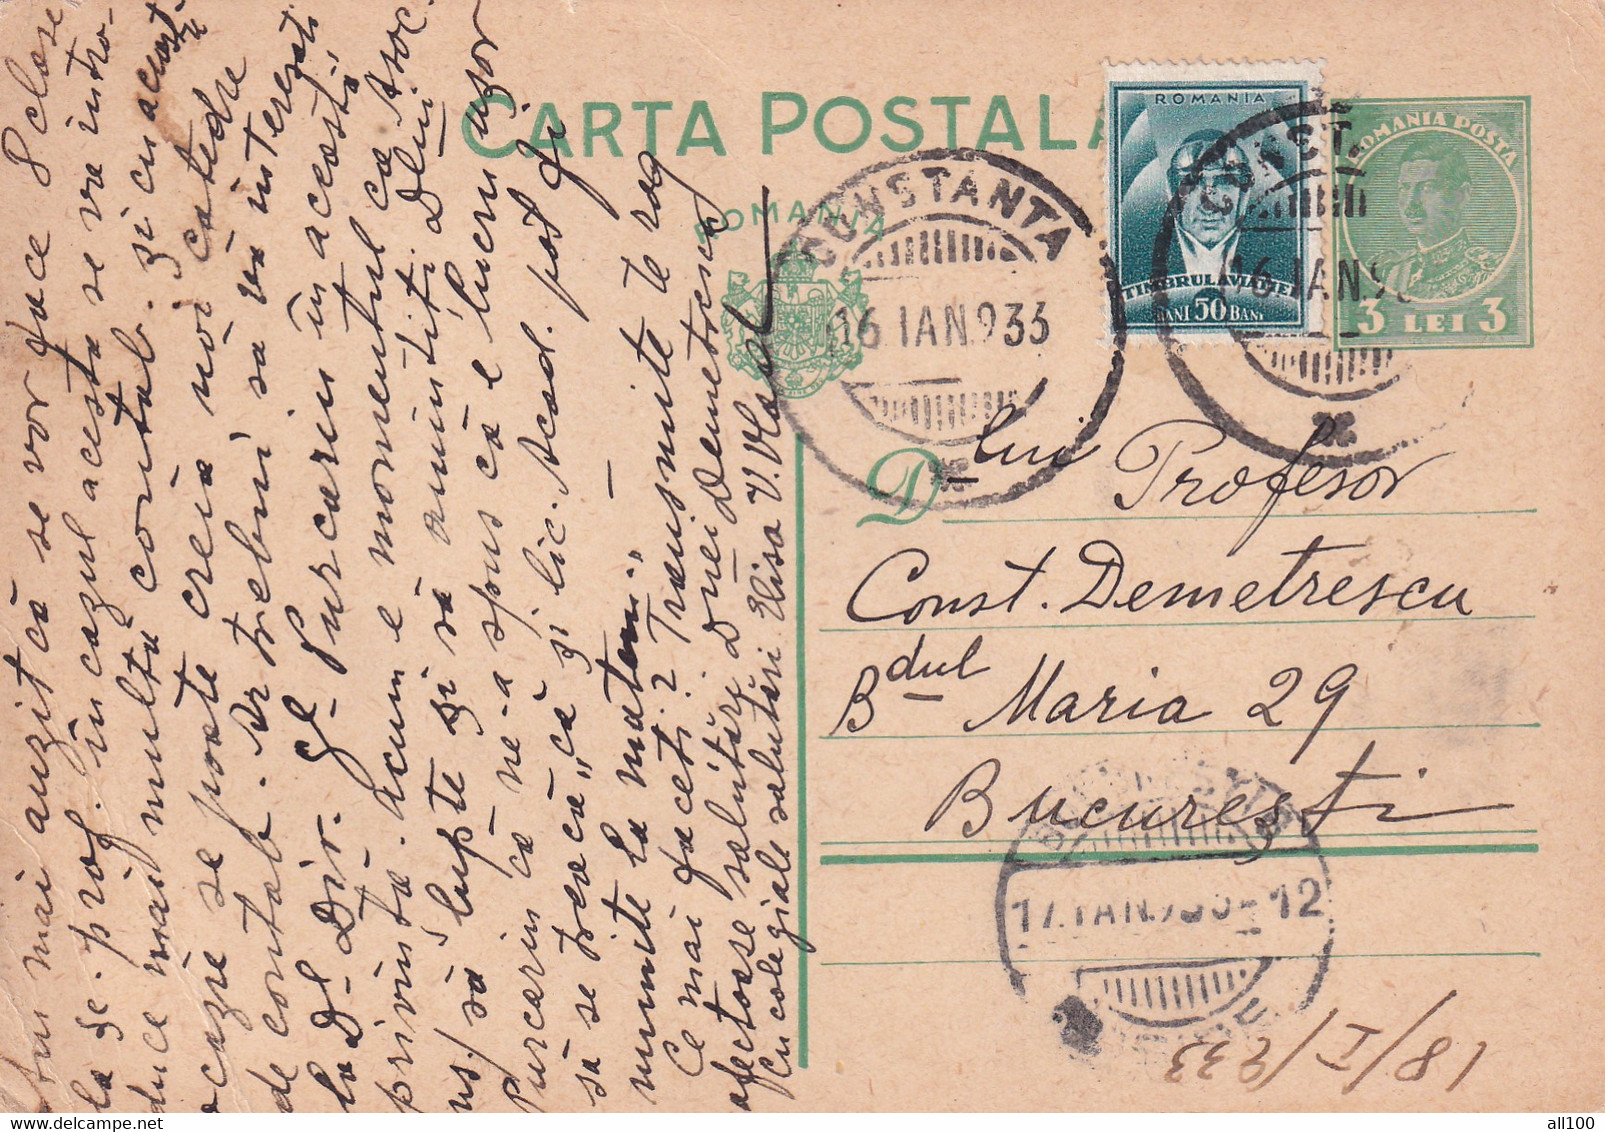 CARTA POSTALA
ROMANIA
ROMANIA
TIMBRUL AVIATIEI
BANI 50 BANI
ROMANIA POSTA
3 LEI 3
CONSTANTA
16 IAN 933
CONST
16 IAN 9
D lui Profesor
Const. Demetrescu
Bdul Maria 29
București
17 IAN 933-12
18/I/933
mai auzit că se vor face 8 clase
la șc. prof. în cazul acesta se va intro-
duce mai multă contab. și cu această
ocazie se poate creia noi catedre
de contab. Ar trebui să vă interesați
la Dl Dir. Gl Purcariu în această
privință. Acum e momentul ca Asoc.
să lupte și să amintiți Dlui
Purcariu că ne-a spus că e lucru ușor
să se treacă „că și lic. Acad. pot fi
numite la
Ce mai faceți? Transmite te rog
afectoase salutări Dnei Demetrescu
Cu colegiale salutări Elisa V. Vlad
all100